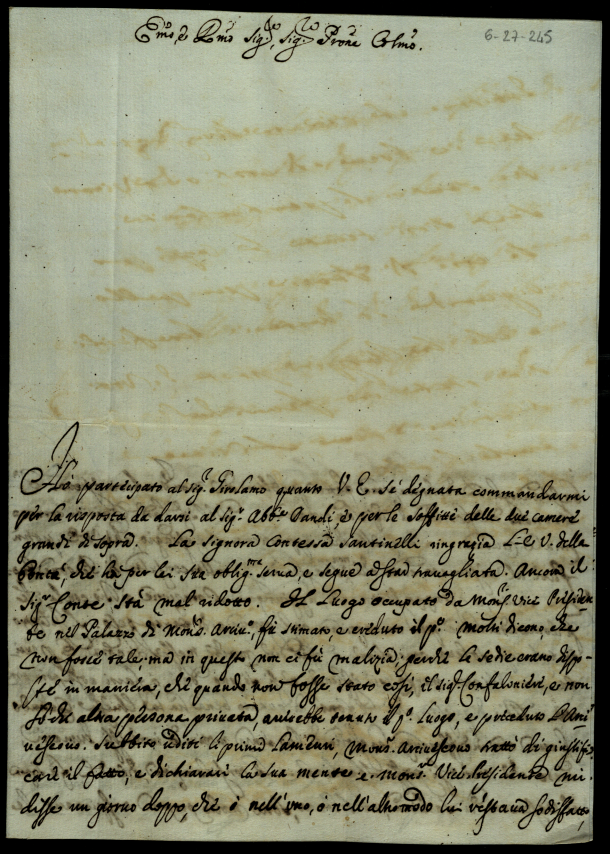 Emo, e Rmo Sigre, Sigre Prone Colmo.
6-27-245
Hò partecipato al sigr. Girolamo quanto V. E. s'è degnata commandarmi
per la risposta da darsi al sigr. Abbe Dandi, e per le soffitte delle due camere
grandi di sopra. La signora Contessa Santinelli ringrazia L'E. V. della
bontà, che ha per lei sua obligma serva, e segue a star travagliata. Ancora il
sigr. Conte stà mal ridotto. Il Luogo occupato da Monsr. Vice Preside-
te nel Palazzo di Monsr. Arciuo. fù stimato, e creduto il po. Molti dicono, che
non fosse tale, ma in questo non ci fù malizia, perche le sedie erano dispo-
ste in maniera, che quando non fosse stato così, il sigr. Confaloniere, e non
altra persona privata, averebbe tenuto il po. Luogo, e preceduto L'Arci-
vescovo. Subbito uditi li primi lamenti, Monsr. Arcivescovo trattò di giustifi-
care il fatto, e dichiarar la sua mente e Monsr. Vice Presidente mi
disse un giorno doppo, che ò nell'uno, ò nell'altro modo lui restava sodisfatto,